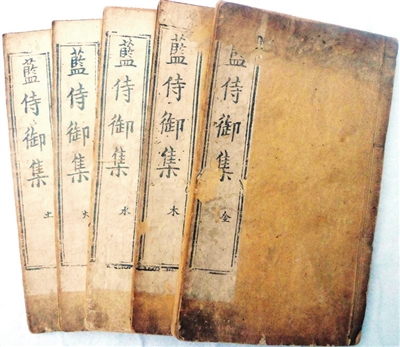 藍侍御集 金
藍侍御集 木
藍侍御集 水
藍侍御集 火
藍侍御集 土